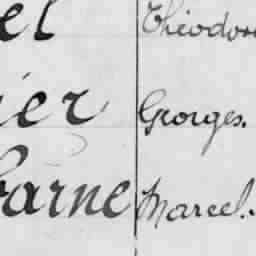 el Théodore
ier Georges.
arne Marcel.